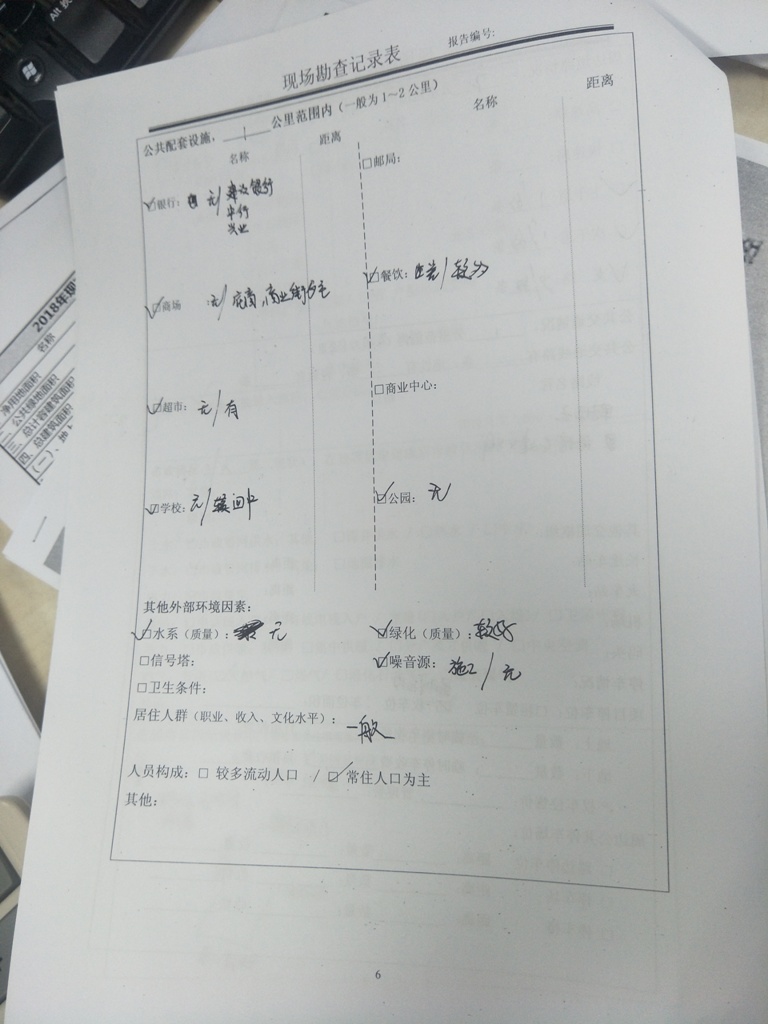 现场勘查记录表
报告编号:
公共配套设施，  公里范围内（一般为1～2公里）
名称 距离 名称 距离
□银行： 无/建设银行
中行
兴业
□邮局：
□商场 ：无/ 商业街为主
□餐饮： 较为
□超市： 无/有
□商业中心：
□学校： 无/
□公园： 无
其他外部环境因素：
□水系（质量）： 无
□绿化（质量）：较好
□信号塔：
□噪音源： 施工/无
□卫生条件：
居住人群（职业、收入、文化水平）： 一般
人员构成：□ 较多流动人口 / □ 常住人口为主
其他：
6
Alt
2018年现
名称
净用地面积
二、公共绿地面积
三、总计容建筑面积
四、总建筑面积
（一）、地上